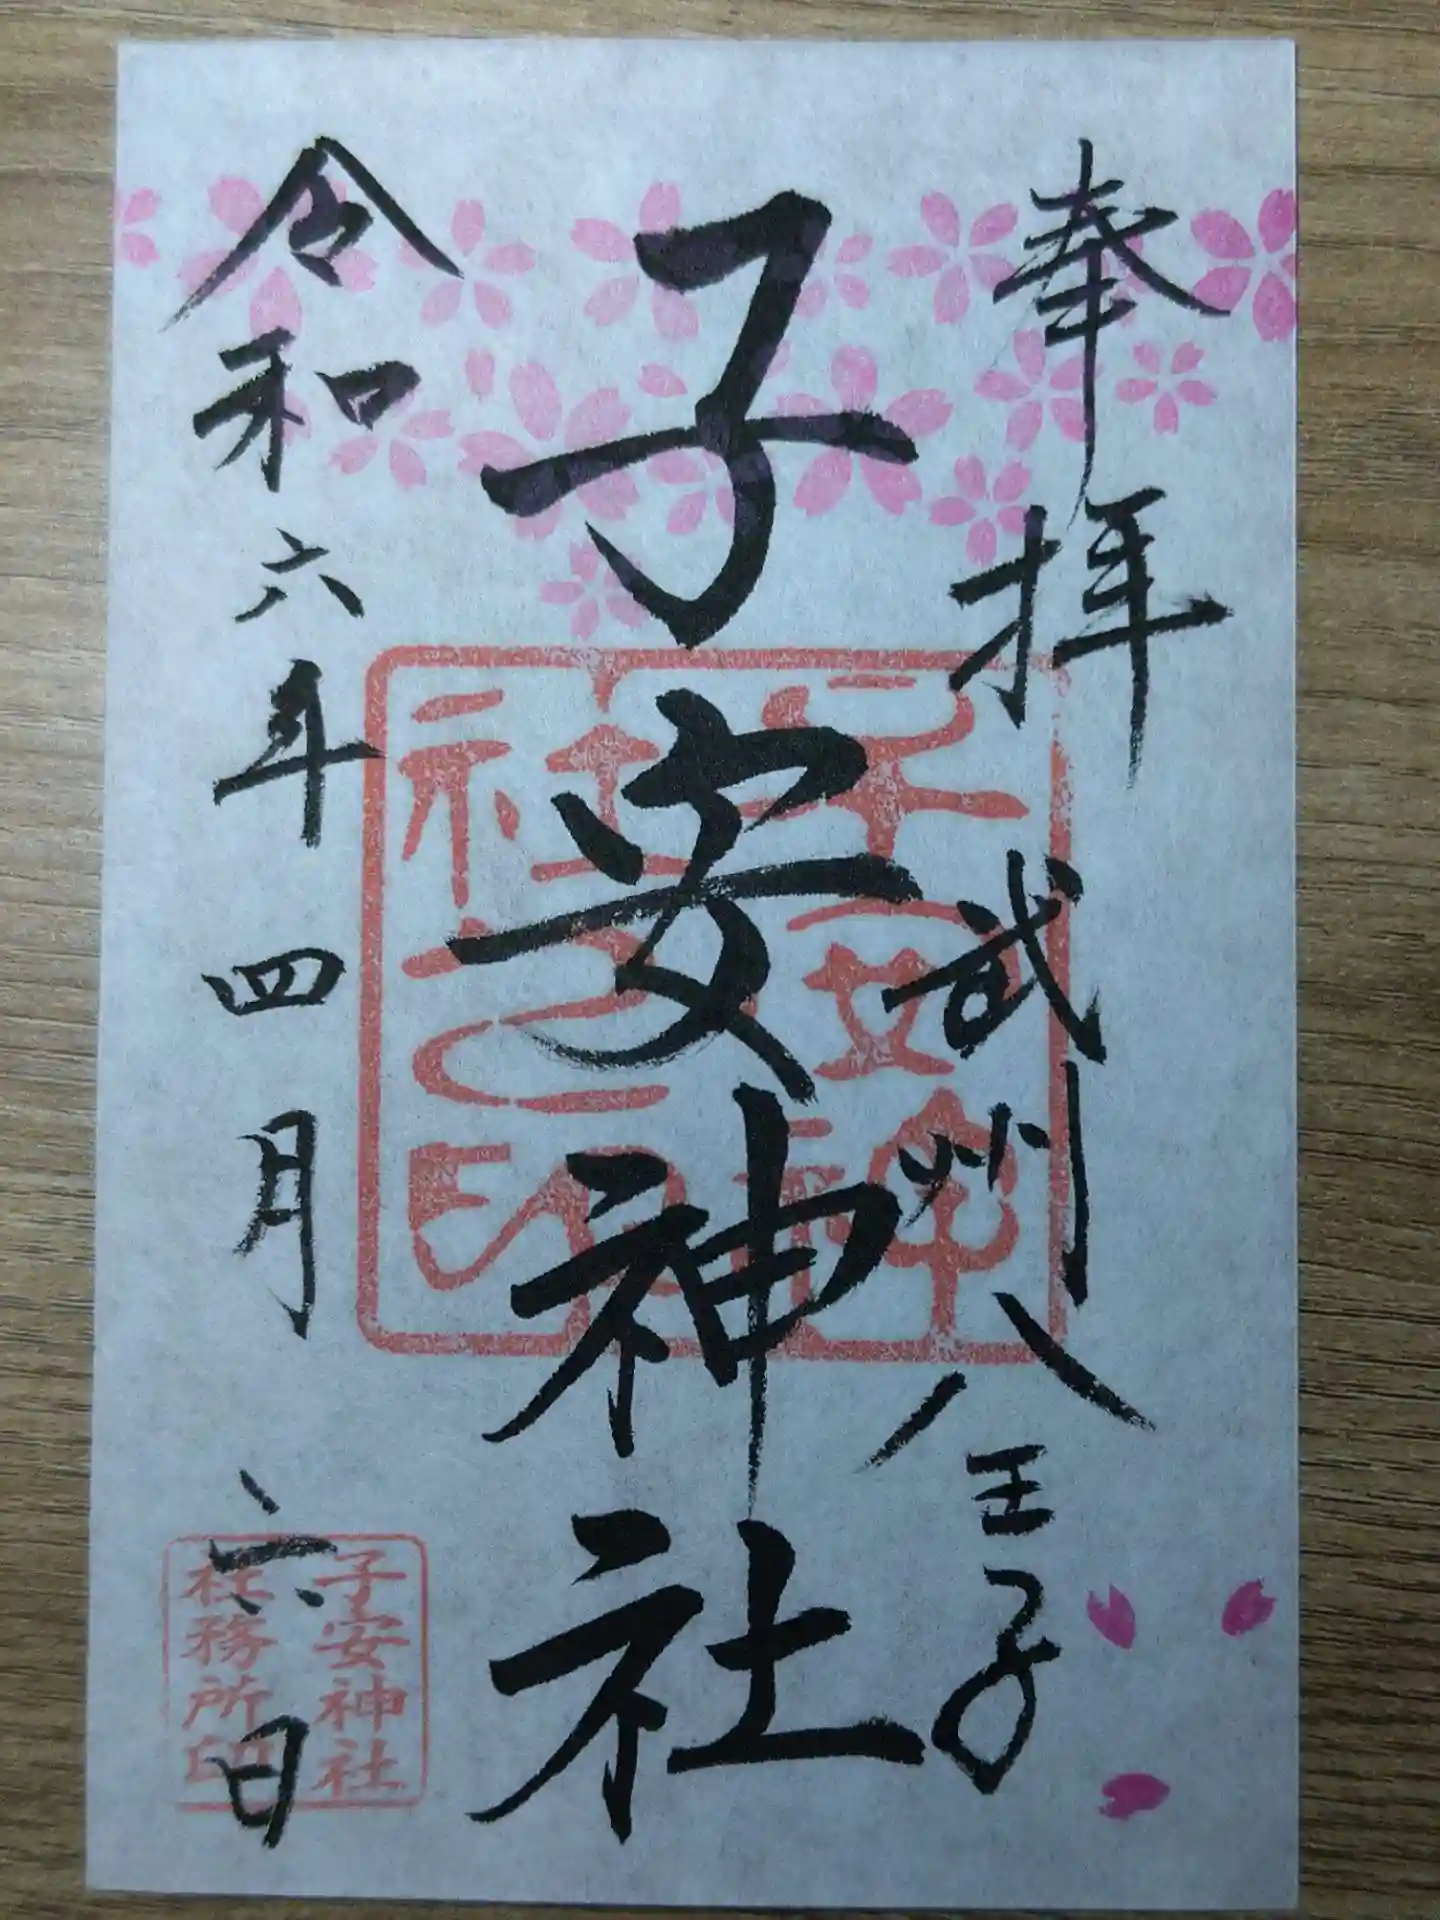 奉拝 武州八王子
子安神社
令和六年四月六日
子安神
社之印
子安神社
社務所印